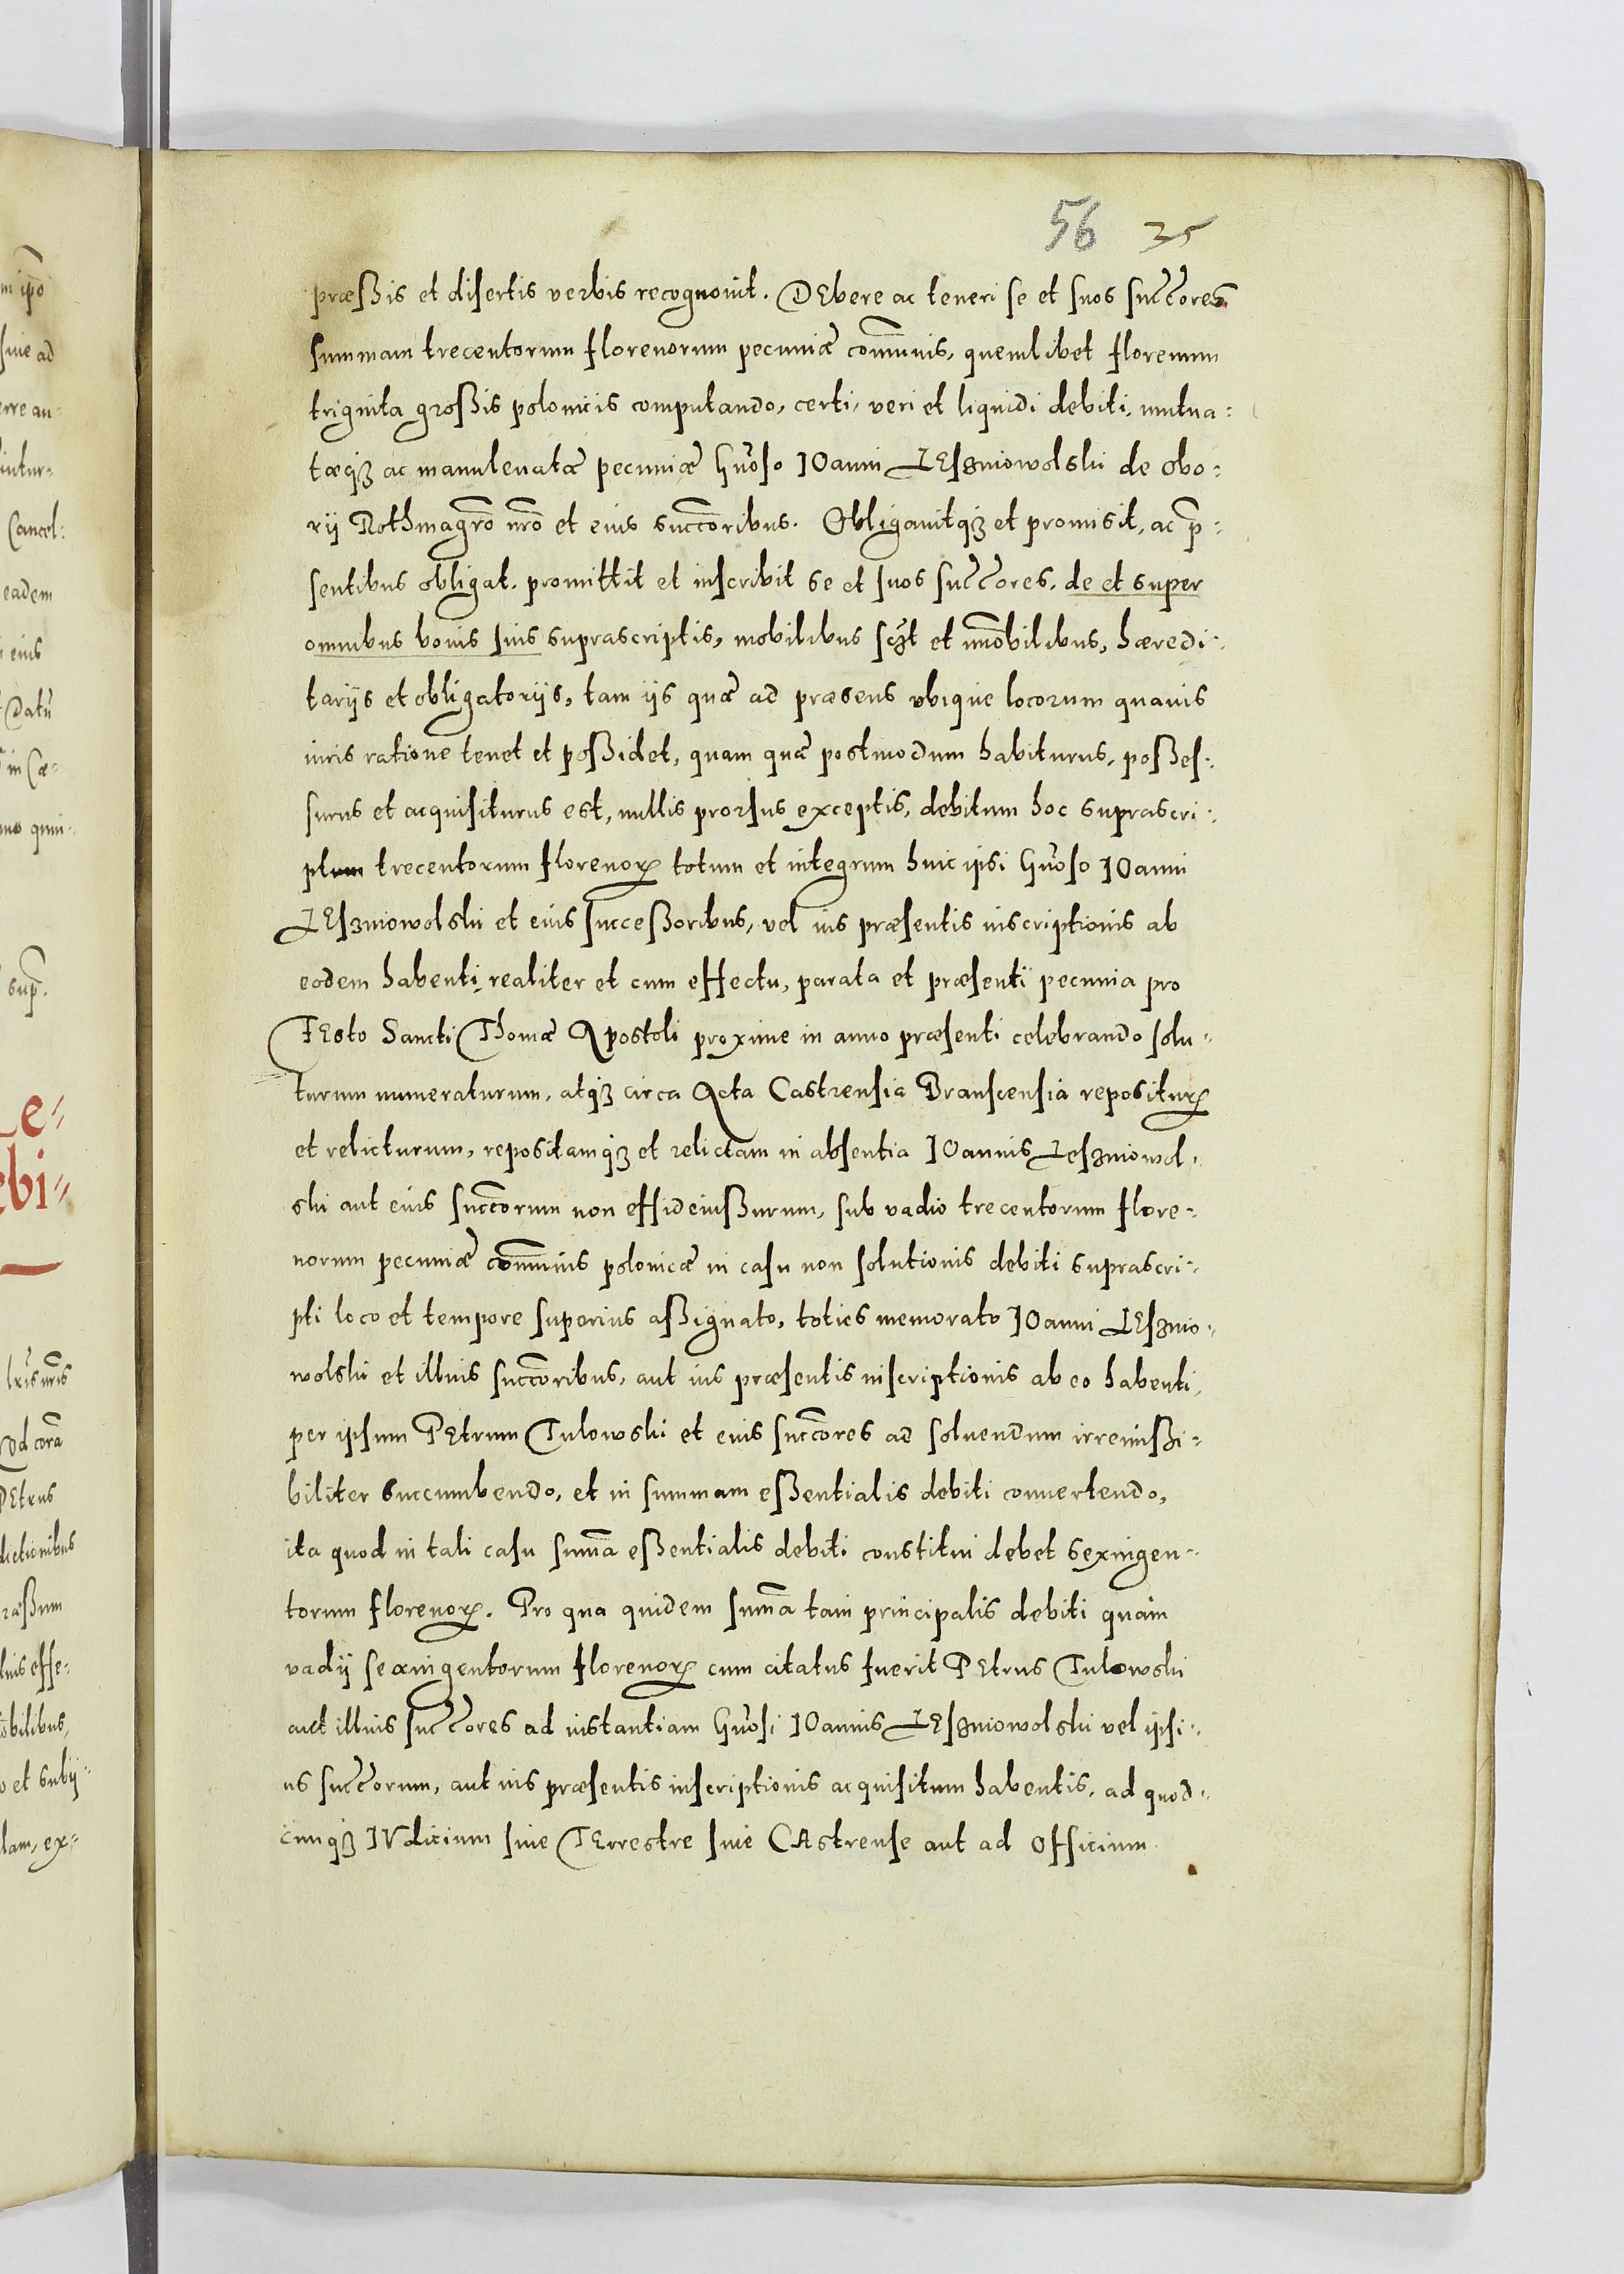 56 35
præssis et disertis verbis recognouit. DEbere ac teneri se et suos succ̃ores
summam trecentorum florenorum pecuniæ com̃unis, quemlibet florenum
triginta grossis polonicis computando, certi, veri et liquidi debiti, mutua:
tæqȝ ac manuleuatæ pecuniæ Gñoso IOanni LEsȝniowolski de obo:
rij Rothmagr̃o nr̃o et eius succ̃oribus. Obligauitqȝ et promisit, ac p̃:
sentibus obligat, promittit et inscribit se et suos succ̃ores, de et super
omnibus bonis suis suprascriptis, mobilibus scȝt et im̃obilibus, hæredi:
tarijs et obligatorijs, tam ijs quæ ad præsens vbique locorum quauis
iuris ratione tenet et possidet, quam quæ postmodum habiturus, posses:
surus et acquisiturus est, nullis prorsus exceptis, debitum hoc suprascri:
ptum trecentorum florenoꝝ totum et integrum huic ipsi Gñoso IOanni
LEsȝniowolski et eius successoribus, vel ius præsentis inscriptionis ab
eodem habenti, realiter et cum effectu, parata et præsenti pecunia pro
FEsto Sancti Thomæ Apostoli proxime in anno præsenti celebrando solu:
turum numeraturum, atqȝ circa Acta Castrensia Branscensia reposituꝝ
et relicturum, repositamqȝ et relictam in absentia IOannis Lesȝniowol:
ski aut eius succ̃orum non effideiussurum, sub vadio trecentorum flore:
norum pecuniæ com̃unis polonicæ in casu non solutionis debiti suprascri:
pti loco et tempore superius assignato, toties memorato IOanni LEsȝnio:
wolski et illius succ̃oribus, aut ius præsentis inscriptionis ab eo habenti,
per ipsum PEtrum Tulowski et eius succ̃ores ad soluendum irremissi:
biliter succumbendo, et in summam essentialis debiti conuertendo,
ita quod in tali casu sum̃a essentialis debiti constitui debet sexingen:
torum florenoꝝ. Pro qua quidem sum̃a tam principalis debiti quam
vadij sexingentorum florenoꝝ cum citatus fuerit PEtrus Tulowski
aut illius succ̃ores ad instantiam Gñosi IOannis LEsȝniowolski vel ipsi:
us succ̃orum, aut ius præsentis inscriptionis acquisitum habentis, ad quod:
cunqȝ IVdicium siue TErrestre siue CAstrense aut ad Officium